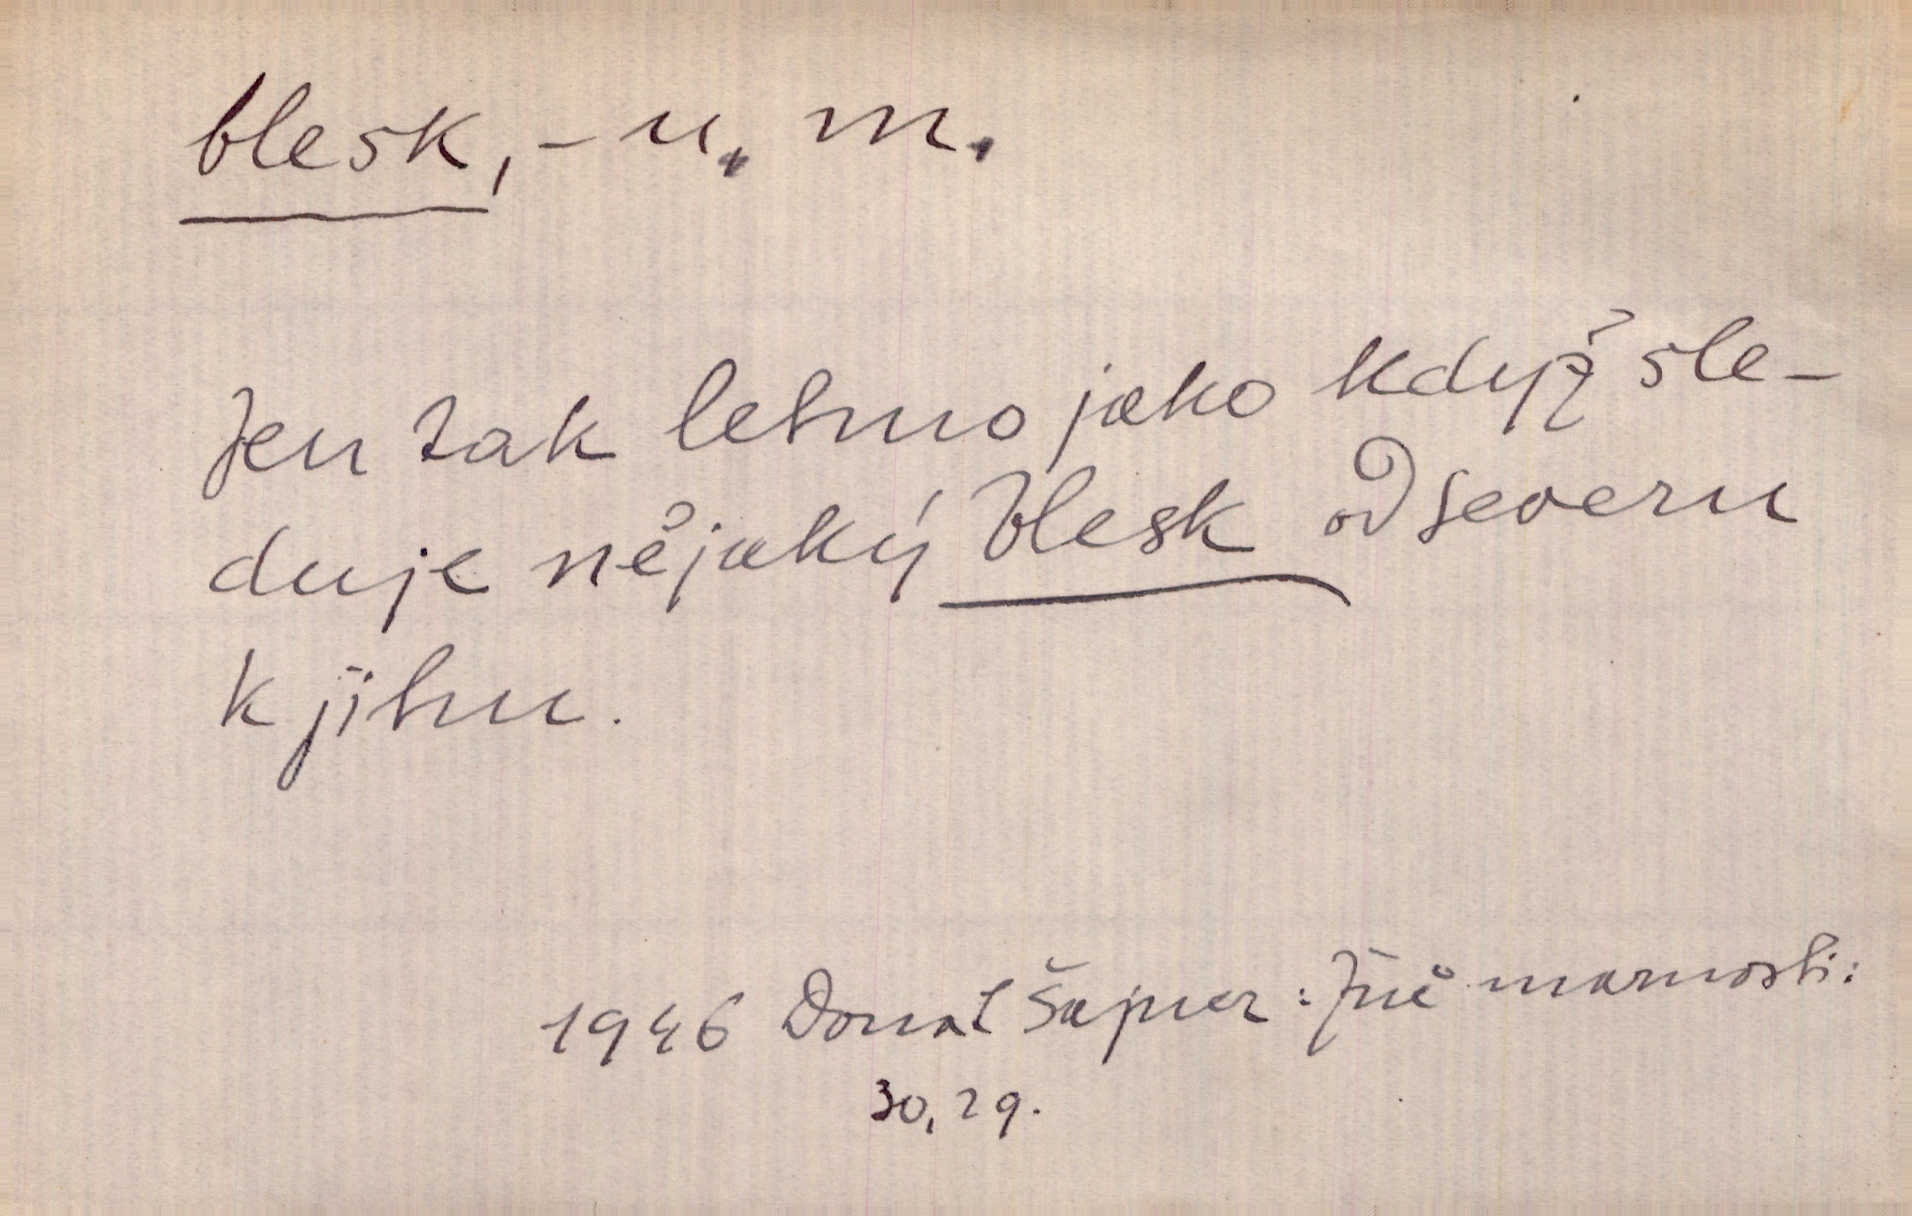 blesk, -u. m.
Jen tak letmo jako když sle-
duje nějaký blesk od severu
k jihu.
1946 Donat Šajner: Jiné marnosti:
30, 29.